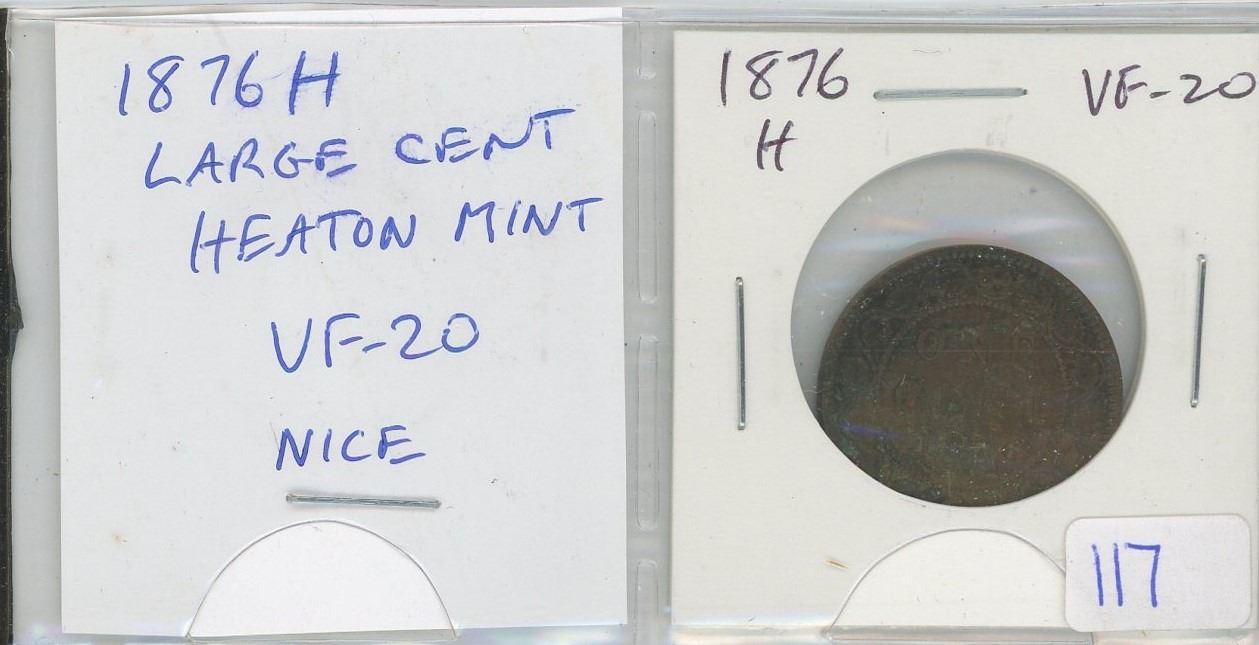 1876 H
LARGE CENT
HEATON MINT
VF-20
NICE
1876
H
VF-20
ONE
117